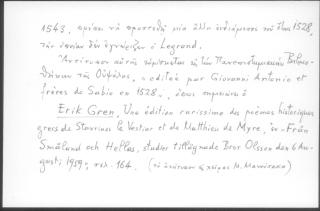 1543, πρέπει νὰ προστεθῇ μία ἄλλη ἐνδιάμεση τοῦ ἔτους 1528,
τὴν ὁποίαν δὲν ἐγνώριζεν ὁ Legrand.
Ἀντίτυπον αὐτῆς εὑρίσκεται εἰς τὴν Πανεπιστημιακὴν Βιβλιο-
θήκην τῆς Οὐψάλας, «edité par Giovanni Antonio et
frères de Sabio en 1528», ὅπως σημειώνει ὁ
Erik Gren, Une édition rarissime des poèmes historiques
grecs de Stavrinos le Vestiar et de Matthieu de Myre, ἐν «Från
Småland och Hellas, studier tillägnade Bror Olsson den 6 Au-
gusti 1959», σελ. 164. (